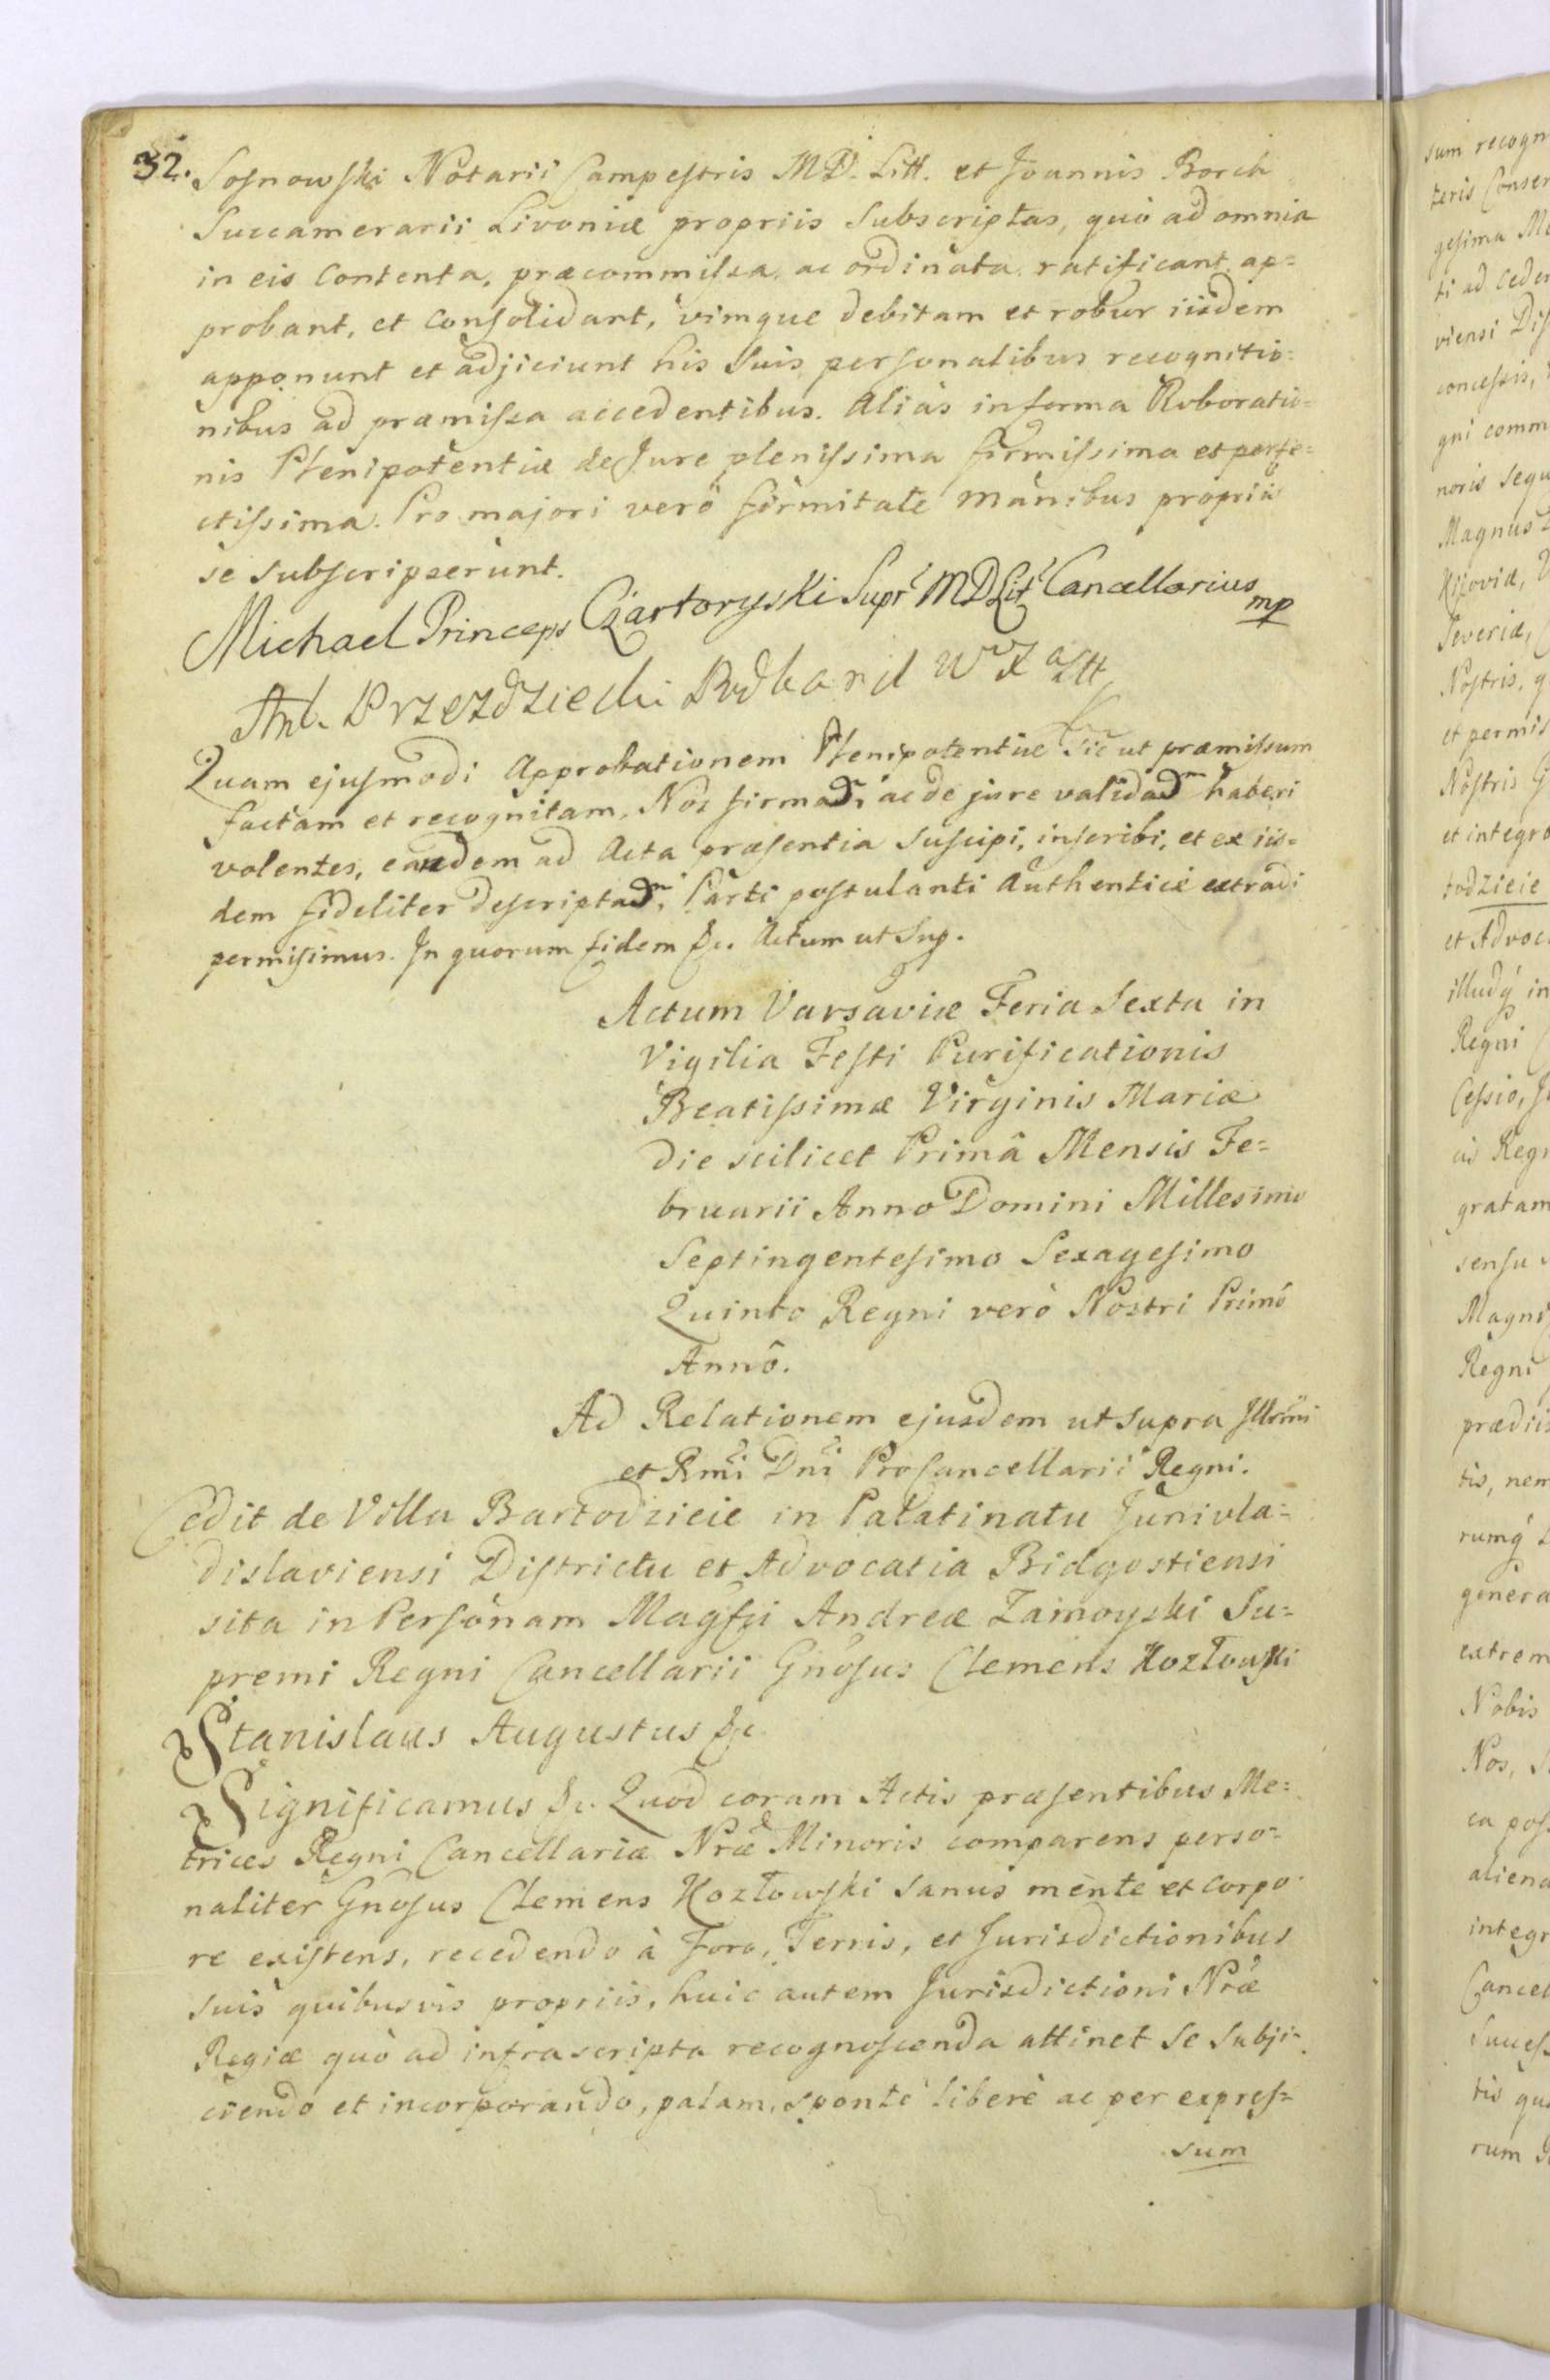 32. Sosnowski Notarii Campestris M.D. Litt. et Joannis Borch
Succamerarii Livoniæ propriis Subscriptas, quò ad omnia
in eis Contenta, præcommissa, ac ordinata, ratificant, ap=
probant, et Consolidant, vimque debitam et robur iisdem
apponunt et adjiciunt his Suis personalibus recognitio=
nibus ad præmissa accedentibus. Aliàs in forma Roboratio=
nis Plenipotentiæ de Jure plenissima firmissima et perfe=
ctissima. Pro majori verò firmitate manibus propriis
se subscripserunt.
Michael Princeps Czartoryski Supr. MDLit Cancellarius
mp
Ant. Przezdziecki Podkancl W X Litt
Quam ejusmodi Approbationem Plenipotentiæ Sic ut præmissum
factam et recognitam, Nos firmam, ac de jure validam haberi
volentes, eandem ad Acta præsentia Suscipi, inscribi, et ex iis=
dem fideliter descriptam, Parti postulanti Authenticè extradi
permisimus. In quorum fidem &c. Actum ut Sup.
Actum Varsaviæ Feria Sexta in
Vigilia Festi Purificationis
Beatissimæ Virginis Mariæ
die scilicet Primâ Mensis Fe=
bruarii Anno Domini Millesimo
Septingentesimo Sexagesimo
Quinto Regni verò Nostri Primô
Annô.
Ad Relationem ejusdem ut supra Illrmi
et Rmi Dni ProCancellarii Regni.
Cedit de Villa Bartodzieie in Palatinatu Junivla=
dislaviensi Districtu et Advocatia Bidgostiensi
sita in Personam Magfci Andreæ Zamoyski Su=
premi Regni Cancellarii Gnosus Clemens Kozłowski
Stanislaus Augustus &c
Significamus &c. Quod coram Actis præsentibus Me=
trices Regni Cancellariæ Nræ Minoris comparens perso=
naliter Gnosus Clemens Kozłowski Sanus mente et corpo
re existens, recedendo à Foro, Terris, et Jurisdictionibus
suis quibusvis propriis, huic autem Jurisdictioni Nræ
Regiæ quò ad infrascripta recognoscenda attinet Se Subji=
ciendo et incorporando, palam, sponte liberè ac per expres=
sum
sum recogn
teris Conser
gesima
ti ad Ceden
viensi Dis
concessis,
gni comm
noris Sequ
Magnus
Kijoviæ,
Severiæ,
Nostris,
et permis
Nostris
et integro
todzieie
et Advoc
illudq in
Regni
Cessio,
Regn
gratam
sensu
Magni
Regni
prædiis
tis, nem
rumq
genera
extrem
Nobis
Nos,
ca pos
aliena
integr
Cancel
Success
tis qua
rum